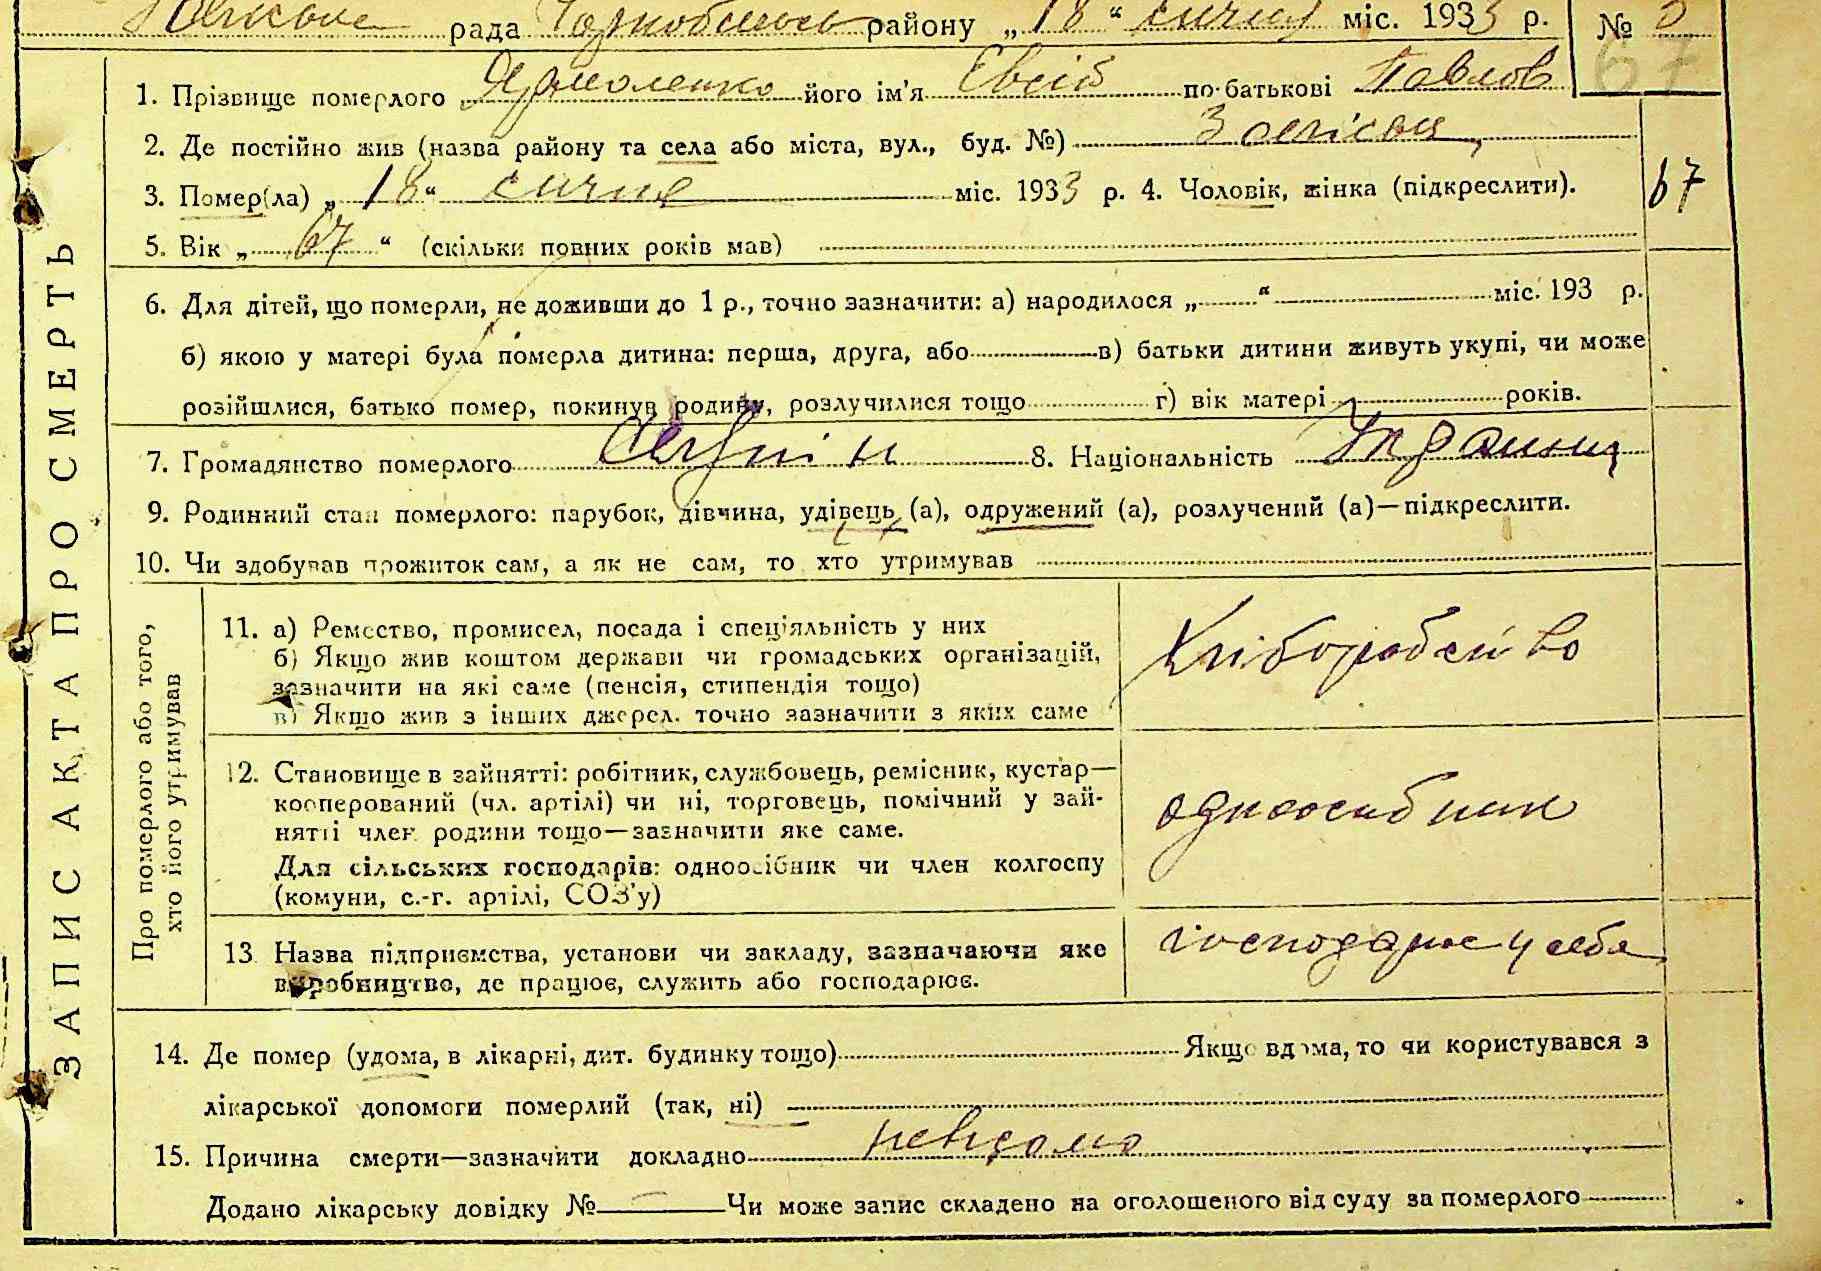 рада Чорнобильс району „18“ січня міс. 1933 р. №
67
1. Прізвище померлого Ярмоленко його ім'я Євсій по-батькові Павлов
2. Де постійно жив (назва району та села або міста, вул., буд. №)
3. Помер(ла) „18“ січня міс. 1933 р. 4. Чоловік, жінка (підкреслити). 67
5. Вік „67“ (скільки повних років мав)
6. Для дітей, що померли, не доживши до 1 р., точно зазначити: а) народилося „ “ міс. 193 р.
б) якою у матері була померла дитина: перша, друга, або в) батьки дитини живуть укупі, чи може
розійшлися, батько помер, покинув родину, розлучилися тощо г) вік матері років.
7. Громадянство померлого 8. Національність Украинец
9. Родинний стан померлого: парубок, дівчина, удівець (а), одружений (а), розлучений (а)—підкреслити.
10. Чи здобував прожиток сам, а як не сам, то хто утримував
ЗАПИС АКТА ПРО СМЕРТЬ
Про померлого або того, хто його утримував
11. а) Ремество, промисел, посада і спеціяльність у них
б) Якщо жив коштом держави чи громадських організацій,
зазначити на які саме (пенсія, стипендія тощо)
в) Якщо жив з інших джерел. точно зазначити з яких саме
Хліборобство
12. Становище в зайнятті: робітник, службовець, ремісник, кустар—
кооперований (чл. артілі) чи ні, торговець, помічний у зай-
нятті член родини тощо—зазначити яке саме.
Для сільських господарів: одноосібник чи член колгоспу
(комуни, с.-г. артілі, СОЗ'у)
одноосибник
13. Назва підприємства, установи чи закладу, зазначаючи яке
виробництво, де працює, служить або господарює.
господарює у себя
14. Де помер (удома, в лікарні, дит. будинку тощо) Якщо вдома, то чи користувався з
лікарської допомоги померлий (так, ні)
15. Причина смерти—зазначити докладно невідомо
Додано лікарську довідку № — Чи може запис складено на оголошеного від суду за померлого